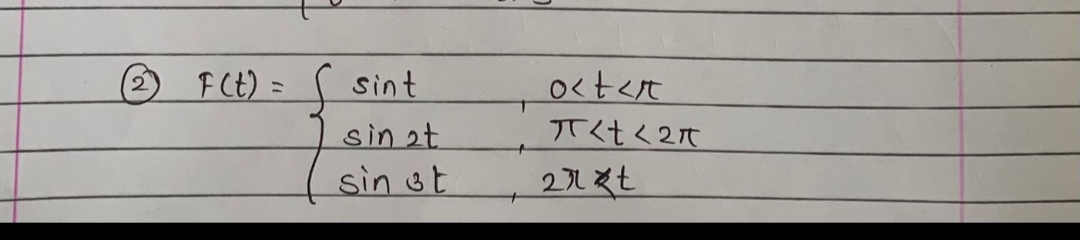 ② F(t) = { sin t , 0<t<π
sin 2t , π<t<2π
sin 3t , 2π<t